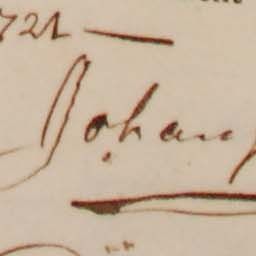 721 —
Johan